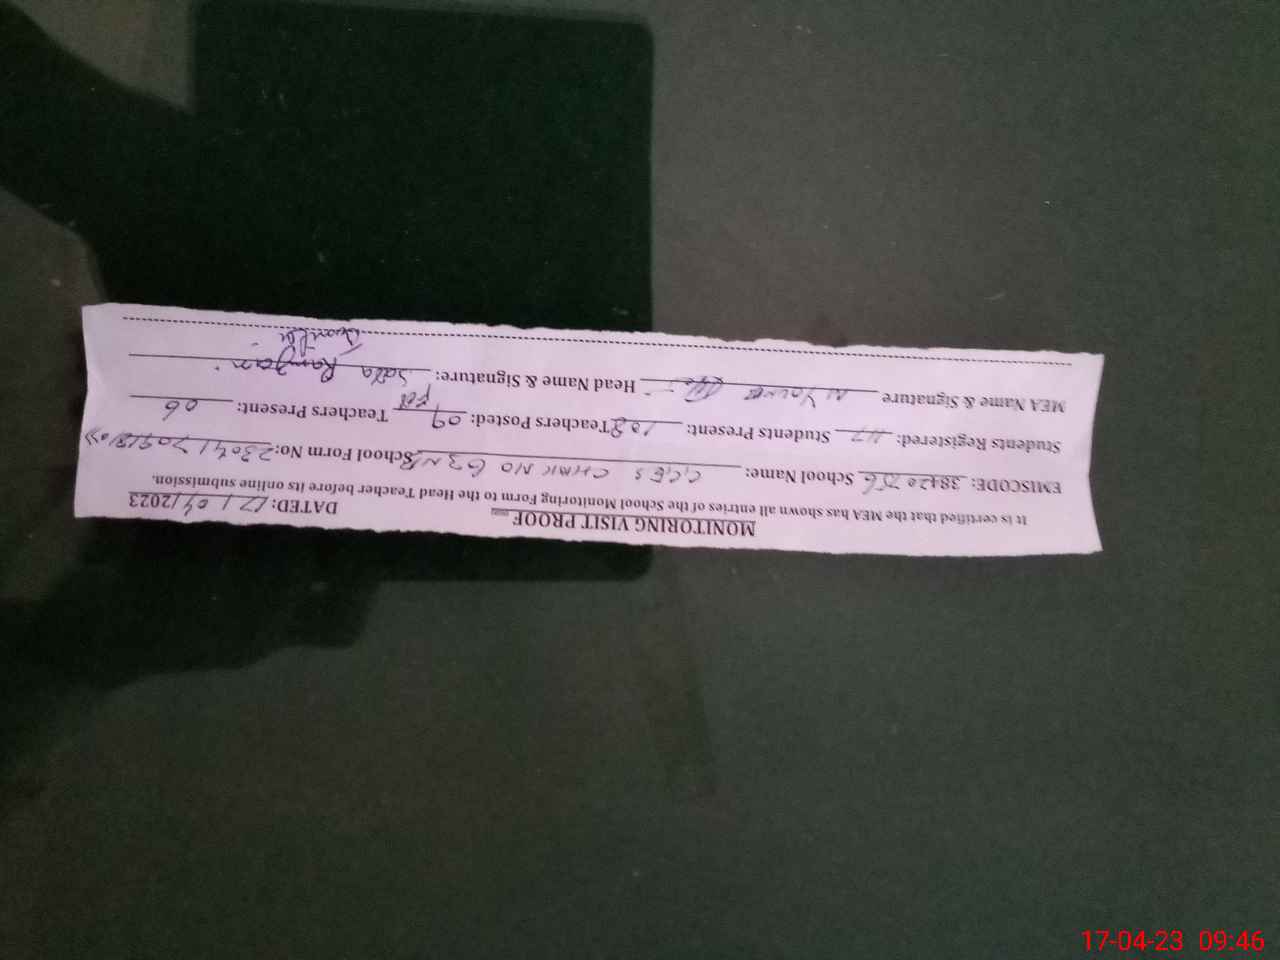 MONITORING VISIT PROOF DATED: 17/04/2023
It is certified that the MEA has shown all entries of the School Monitoring Form to the Head Teacher before its online submission.
EMISCODE: 38420756 School Name: CHAK NO 63 School Form No:
Students Registered: 117 Students Present: 108 Teachers Posted: 09 Teachers Present: 06
MEA Name & Signature Head Name & Signature: Ramzan
17-04-23 09:46